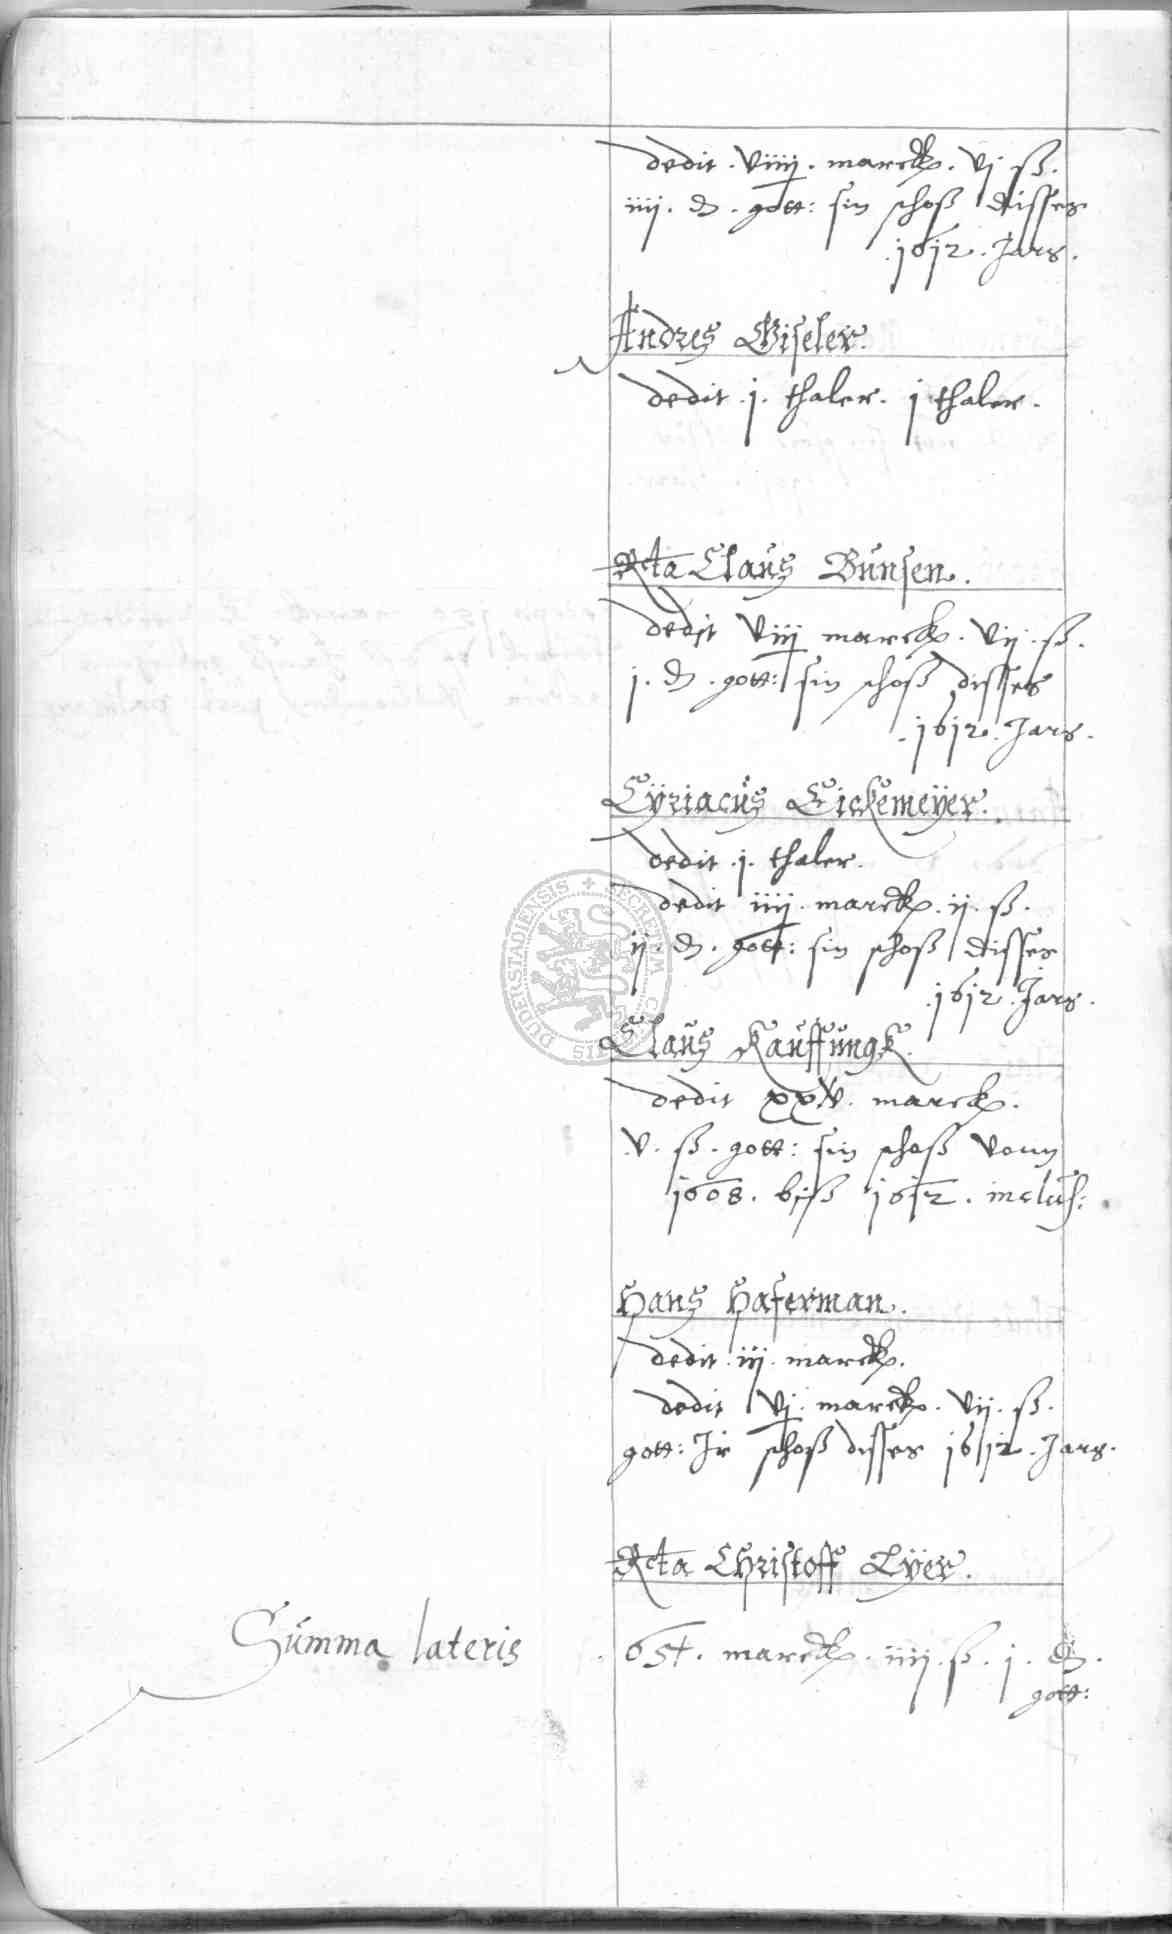 dedit . viiij . marck . vj ß .
iiij . d . gott: sin schoß disses
. 1612 . Jars .
Andres Giseler .
dedit . j . thaler . j thaler .
Rcta Claus Bunsen .
dedit viij marck . vij . ß .
j . d . gott: sin schoß disses
. 1612 . Jars .
Cÿriacus Eickemeÿer .
dedit . j . thaler .
dedit iiij . marck . ij . ß .
ij . d . gott: sin schoß disses
. 1612 . Jars .
Claus Kauffungk .
dedit xxv . marck .
v . ß . gott: sin schoß vonn
1608 . biß 1612 . inclus:
Hans Haferman .
dedit . iij . marck .
dedit vj . marck . vij . ß .
gott: Jr schoß disses 1612 . Jars .
Rcta Christoff Lÿer .
Summa lateris . 654 . marck . iiij . ß . j . d .
gott:
DUDERSTADIENSIS SECRETUM